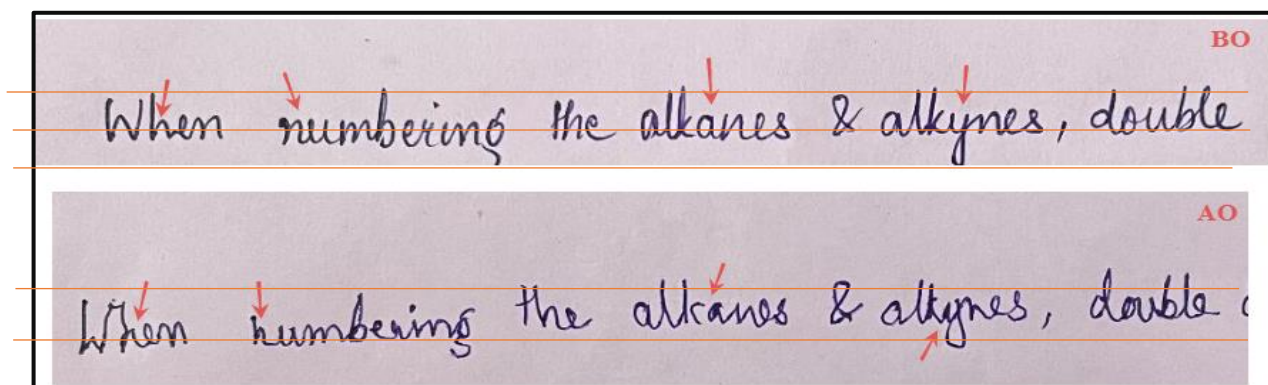 BO
When numbering the alkanes & alkynes, double
AO
When numbering the alkanes & alkynes, double